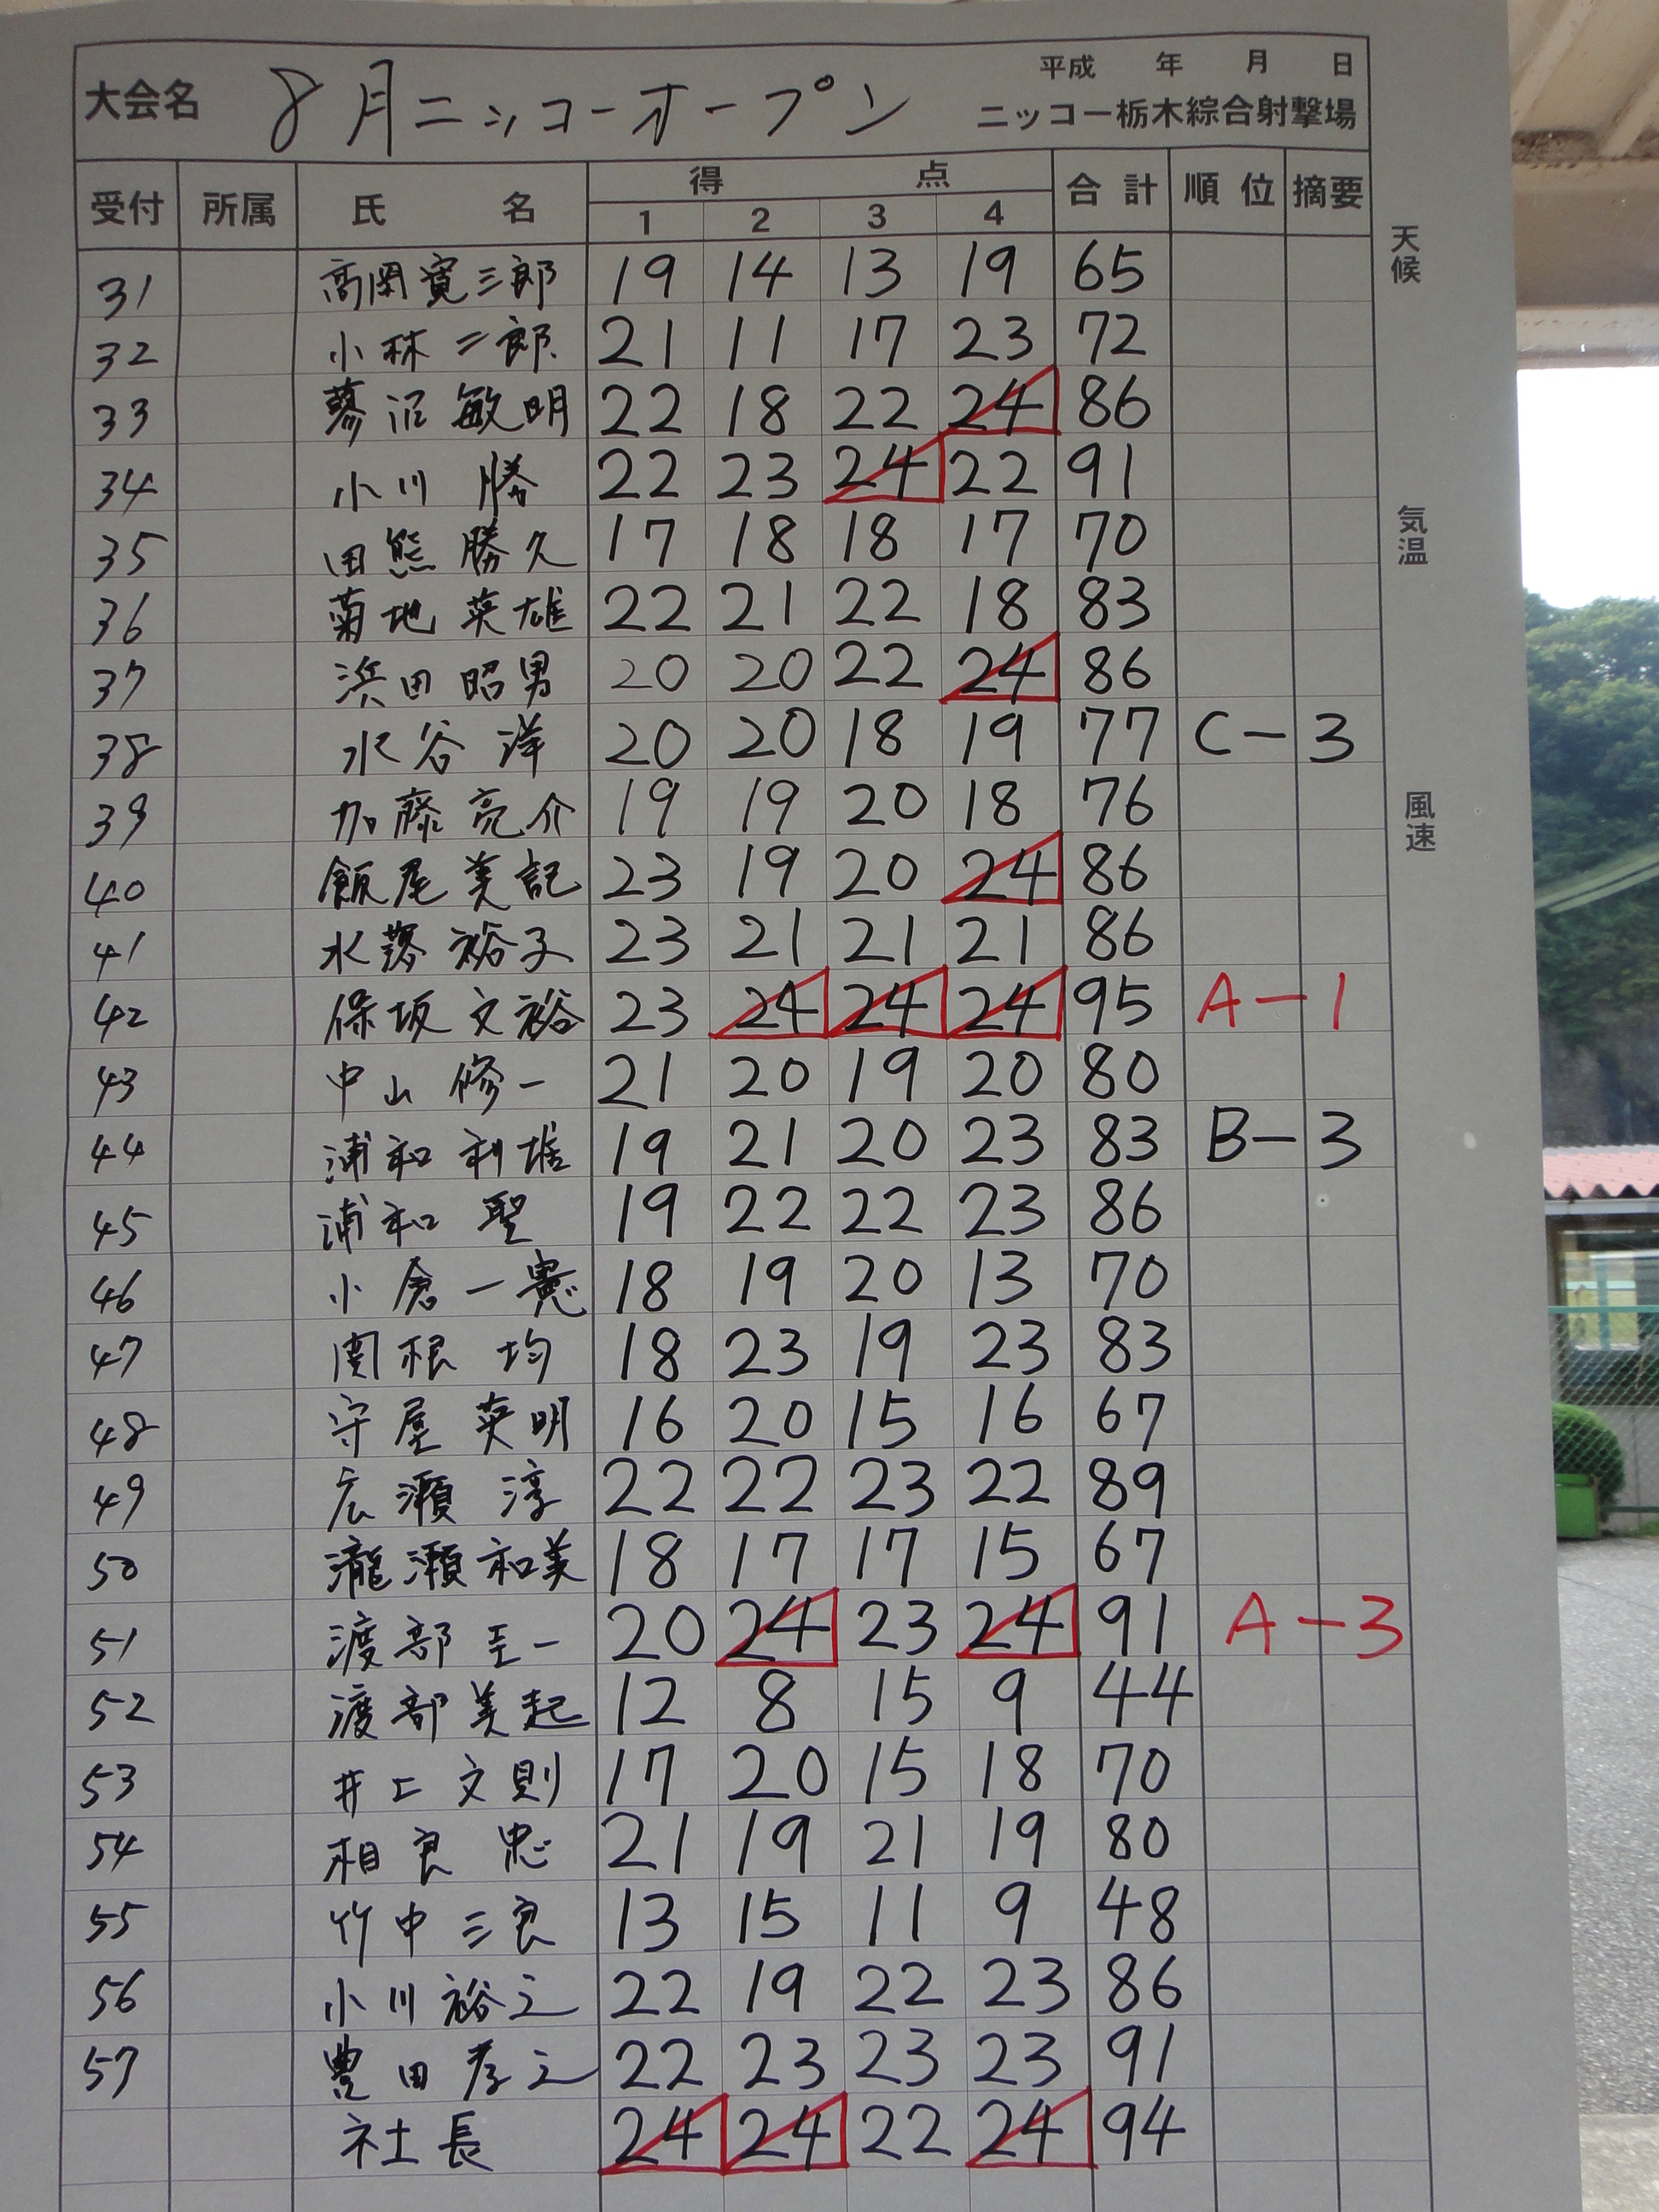 平成 年 月 日
大会名 8月ニッコーオープン ニッコー栃木綜合射撃場
受付 所属 氏 名 得 点 合計 順位 摘要
1 2 3 4
天候
気温
風速
31 高岡寛三郎 19 14 13 19 65
32 小林二郎 21 11 17 23 72
33 蓼沼敏明 22 18 22 24 86
34 小川 勝 22 23 24 22 91
35 田熊勝久 17 18 18 17 70
36 菊地英雄 22 21 22 18 83
37 浜田昭男 20 20 22 24 86
38 水谷洋 20 20 18 19 77 C-3
39 加藤亮介 19 19 20 18 76
40 飯尾美記 23 19 20 24 86
41 水落裕子 23 21 21 21 86
42 保坂文裕 23 24 24 24 95 A-1
43 中山修一 21 20 19 20 80
44 浦和利雄 19 21 20 23 83 B-3
45 浦和 聖 19 22 22 23 86
46 小倉一憲 18 19 20 13 70
47 関根 均 18 23 19 23 83
48 守屋英明 16 20 15 16 67
49 広瀬 淳 22 22 23 22 89
50 瀧瀬和美 18 17 17 15 67
51 渡部至一 20 24 23 24 91 A-3
52 渡部美起 12 8 15 9 44
53 井上文則 17 20 15 18 70
54 相良 忠 21 19 21 19 80
55 竹中三良 13 15 11 9 48
56 小川裕之 22 19 22 23 86
57 豊田孝之 22 23 23 23 91
社長 24 24 22 24 94